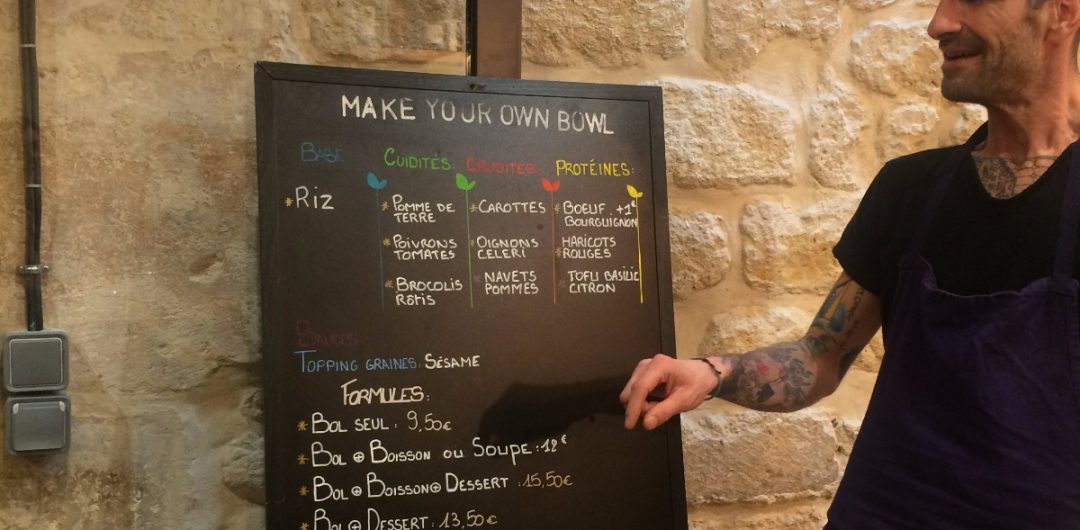 MAKE YOUR OWN BOWL
BASE CUIDITÉS: CRUDITÉS: PROTÉINES:
*RIZ
*POMME DE TERRE
*POIVRONS TOMATES
*BROCOLIS RÔTIS
*CAROTTES
*OIGNONS CELERI
NAVETS POMMES
*BOEUF : +1€ BOURGUIGNON
*HARICOTS ROUGES
TOFU BASILIC CITRON
TOPPING GRAINES: SÉSAME
FORMULES:
*BOL SEUL : 9,50€
*BOL ⊕ BOISSON OU SOUPE : 12€
*BOL ⊕ BOISSON ⊕ DESSERT : 15,50€
*BOL ⊕ DESSERT : 13,50€